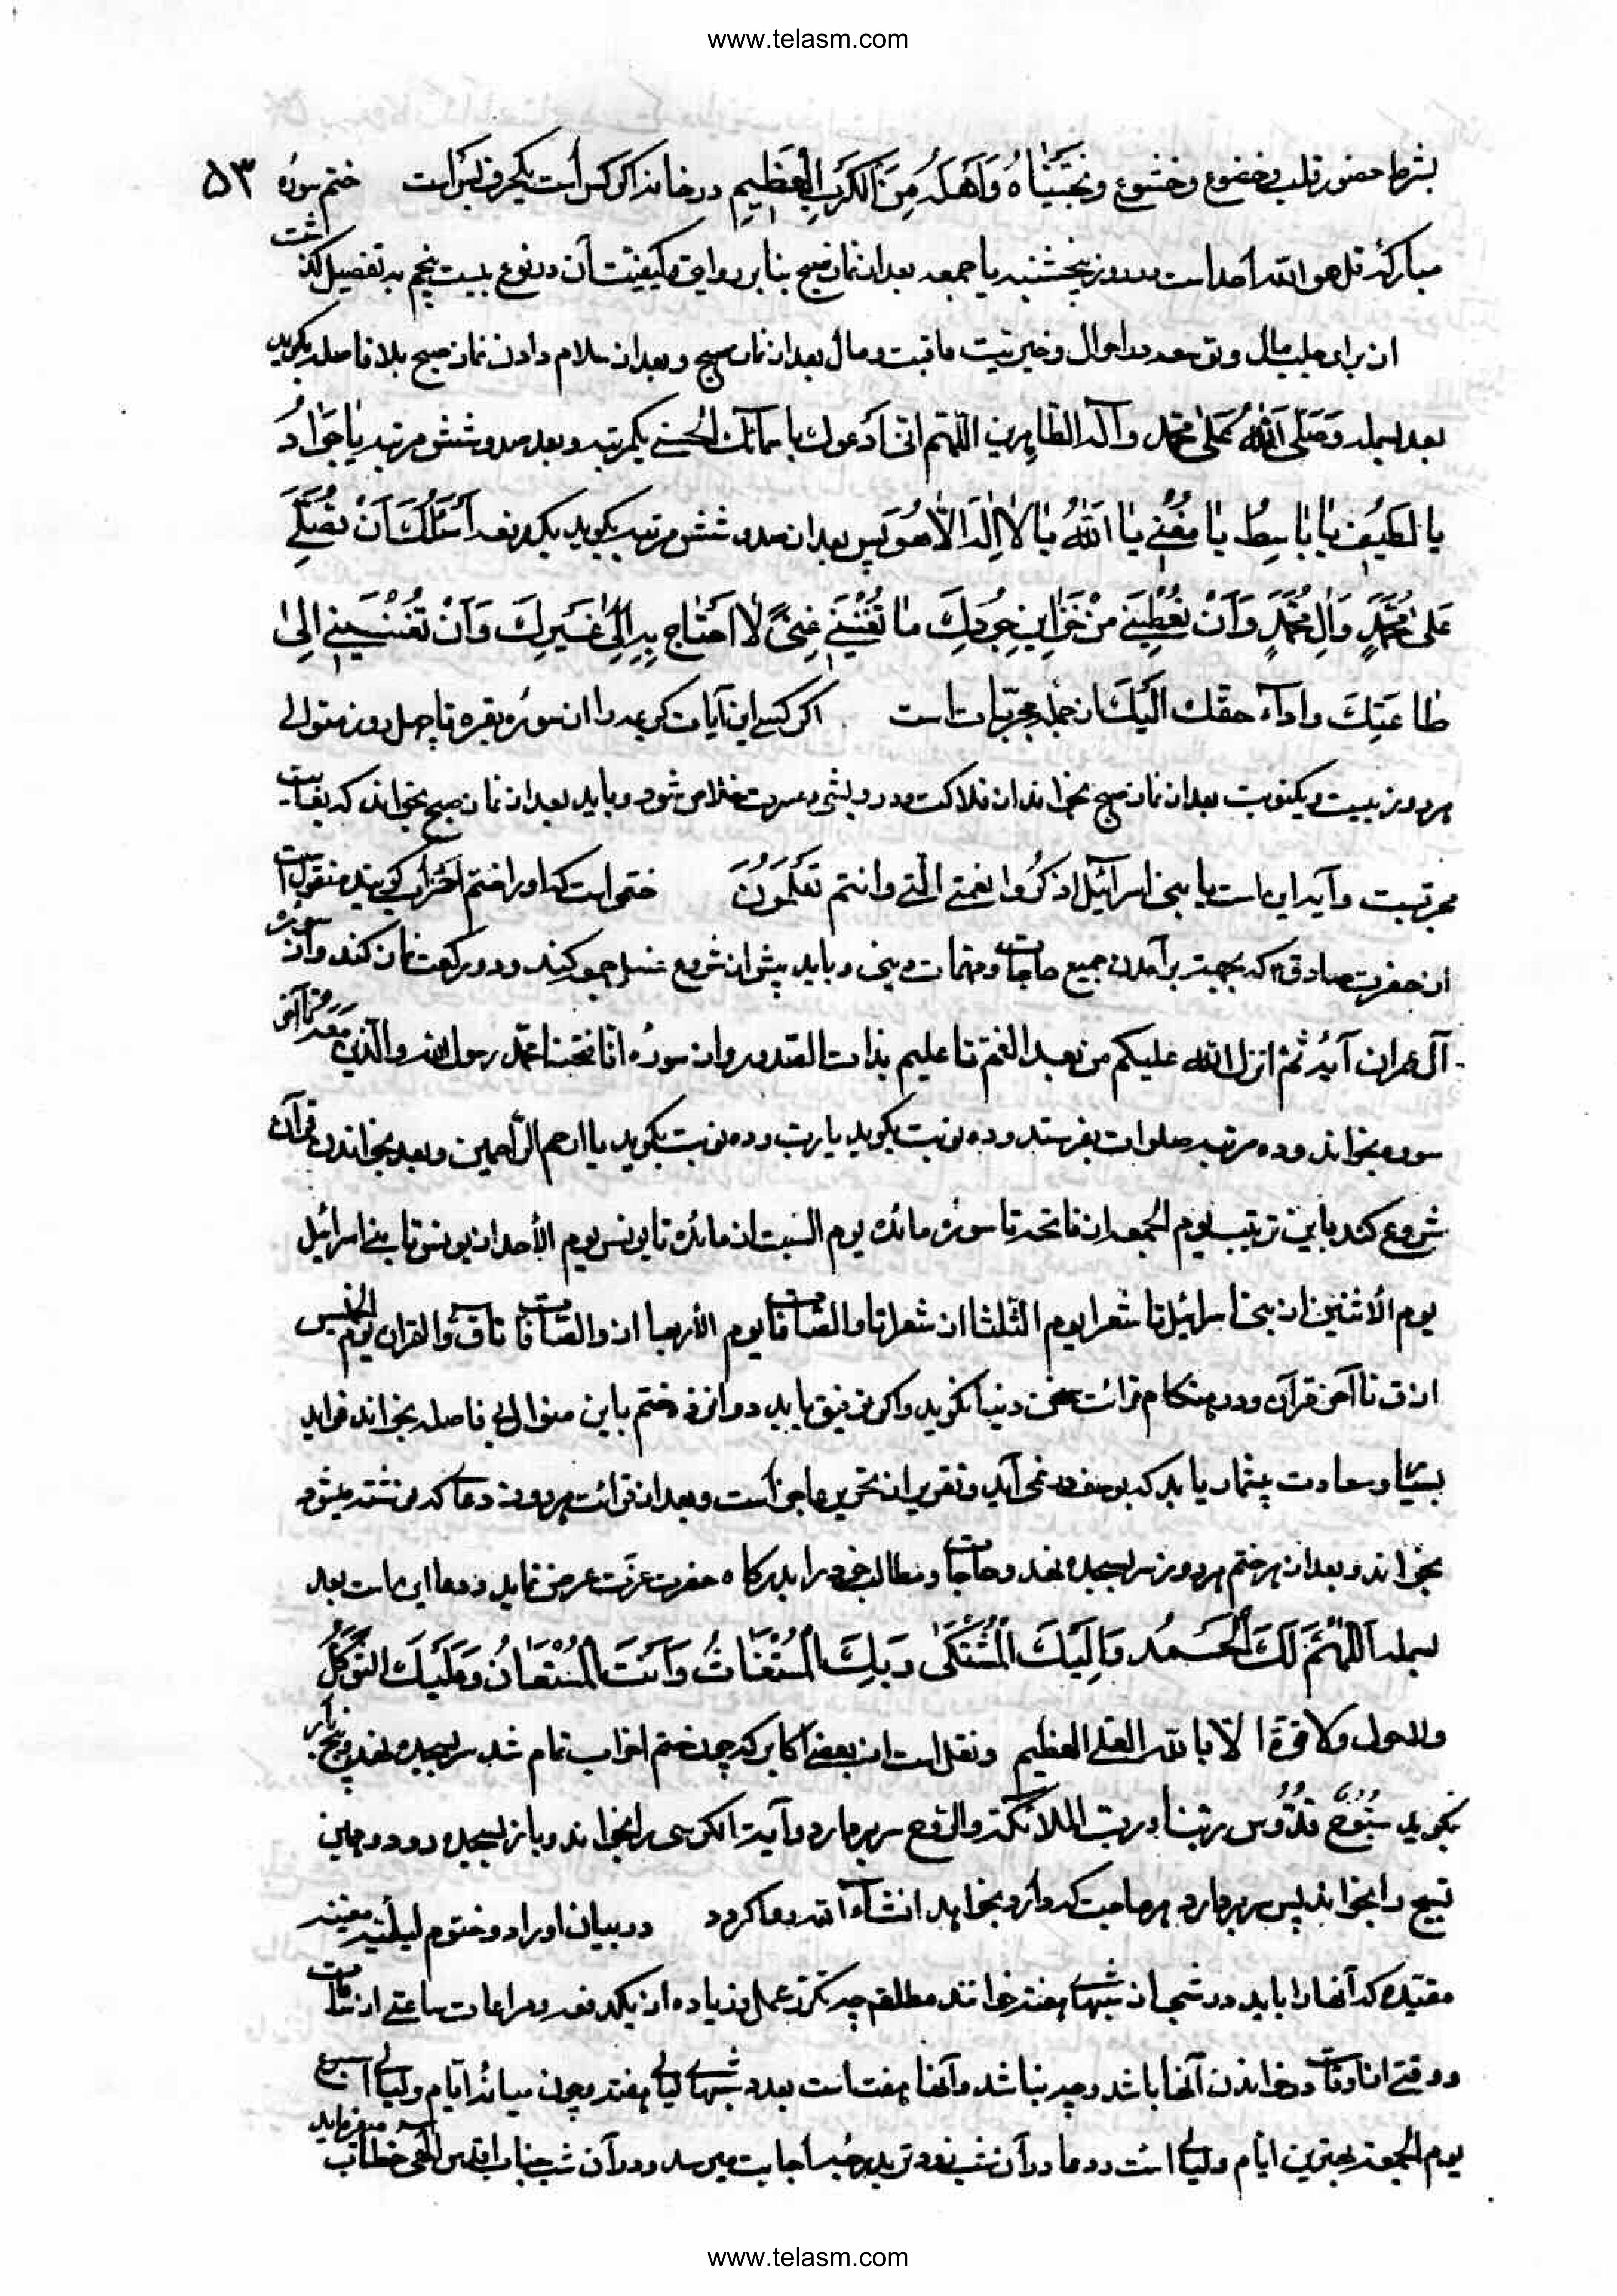 www.telasm.com
بشرط حضور قلب و خضوع و خشوع و نجیناه و اهله من الکرب العظیم در خانه اگر کس است یکحرف بس است ختم سوره ۵۳
مبارکه قل هو الله احد است در روز پنجشنبه یا جمعه بعد از نماز صبح بنا بر روایتی و کیفیت آن در نوع بیست پنجم به تفصیل گذشت
از برای طلب مال و توسعه در احوال و خیریت عاقبت و مال بعد از نماز صبح و بعد از سلام دادن نماز صبح بلا فاصله بگوید
بعد بسمله وَصَلَّی اللهُ عَلی محمّد وآله الطّاهرین اللّهم انّی اَدعوک باسمائک الحُسنی یکمرتبه و بعد صد و شش مرتبه یا جَوادُ
یا لَطیفُ یا باسِطُ یا مُغنی یا اَللهُ یا لا اِلهَ اِلّا هُوَ پس بعد از صد و شش مرتبه بگوید یکدفعه اَسئَلُکَ اَنْ تُصَلّیَ
عَلی مُحَمَّدٍ وَآلِ مُحَمَّدٍ وَاَنْ تُعْطِیَنی مِنْ خَزاینِ جُودِکَ ما تُغْنینی غِنیً لا اَحتاج بِهِ اِلی غَیرِکَ وَاَنْ تُغْنیَنی اِلی
طاعَتِکَ واداء حقّک اِلَیکَ از جمله مجرّبات است اگر کسی این آیات کریمه را از سوره بقره تا چهل روز متوالی
هر روز بیست و یکنوبت بعد از نماز صبح بخواند از فلاکت و درویشی و عسرت خلاص شود و باید بعد از نماز صبح بخواند که بغایت
مجربست و آیه این است یا بنی اسرآئیل اذکُروا نعمتی الّتی وانتم تَعلَمُونَ ختمی است که او را ختم احزاب گویند منقول است
از حضرت صادق ع که بجهت برآمدن جمیع حاجات و مهمات دینی و باید پیش از شروع غسل جمعه کنند و دو رکعت نماز کند و از سوره
آل عمران آیه ثُمّ انزل الله علیکم من بعد الغمّ تا علیم بذات الصّدور و از سوره انّا فتحنا محمّد رسول الله والّذین معه تا آخر
سوره بخواند و ده مرتبه صلوات بفرستد و ده نوبت بگوید یا ربّ و ده نوبت بگوید یا ارحم الرّاحمین و بعد بخواندن قرآن
شروع کند باین ترتیب یوم الجمعه از فاتحه تا سوره مائده یوم السّبت از مائده تا یونس یوم الأحد از یونس تا بنی اسرائیل
یوم الاثنین از بنی اسرائیل تا شعرا یوم الثّلثا از شعرا تا والصّافّات یوم الأربعا از والصّافّات تا ق والقران یوم الخمیس
از ق تا آخر قرآن و در هنگام قرائت سخن دنیا نگوید و اگر توفیق یابد دوازده ختم باین منوال بی فاصله بخواند فواید
بسیار و سعادت بیشمار یابد که بوصف در نمی آید و تقریر از تحریر عاجز است و بعد از قرائت هر روزه دعا که نوشته میشود
بخواند و بعد از هر ختم هر روز سر بسجده نهد و حاجات و مطالب خود را بدرگاه حضرت عزّت عرض نماید و دعا این است بعد
بسمله اَللّهُمَّ لَکَ الْحَمدُ وَاِلَیکَ الْمُشْتَکی وَبِکَ الْمُسْتَغاثُ وَاَنْتَ الْمُسْتَعانُ وَعَلَیکَ التَّوَکُّلُ
ولا حول ولا قوّة الّا بالله العلی العظیم و نقل است از بعضی اکابر که چون ختم احزاب تمام شد سر بسجده نهد و پنج بار
بگوید سُبّوحٌ قُدّوس ربّنا وربّ الملائکة والرّوح سر بردارد و آیة الکرسی را بخواند و باز بسجده رود و همین
تسبیح را بخواند پس سر بردارد هر حاجت که دارد بخواهد انشآء الله روا گردد در بیان اوراد و ختوم لیلیّه معیّنه
مقیّده که آنها را باید در شبی از شبهای هفته خوانند مطلقا چه تکرّر عمل و زیاده از یکدفعه و مراعات ساعتی از ساعات
و وقتی از اوقات در خواندن آنها باشد و چه نباشد و آنها هفت است بعدد شبهای لیالی هفته و چون میانه ایام و لیالی اسبوع
یوم الجمعه بهترین ایّام و لیالی است و دعا در آن شب زودتر بدرجه اجابت میرسد و در آن شب جناب اقدس الهی خطاب میفرماید
www.telasm.com